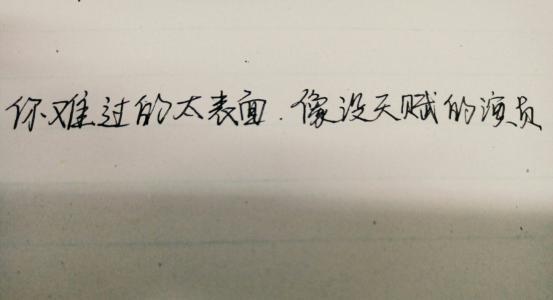 你难过的太表面.像没天赋的演员